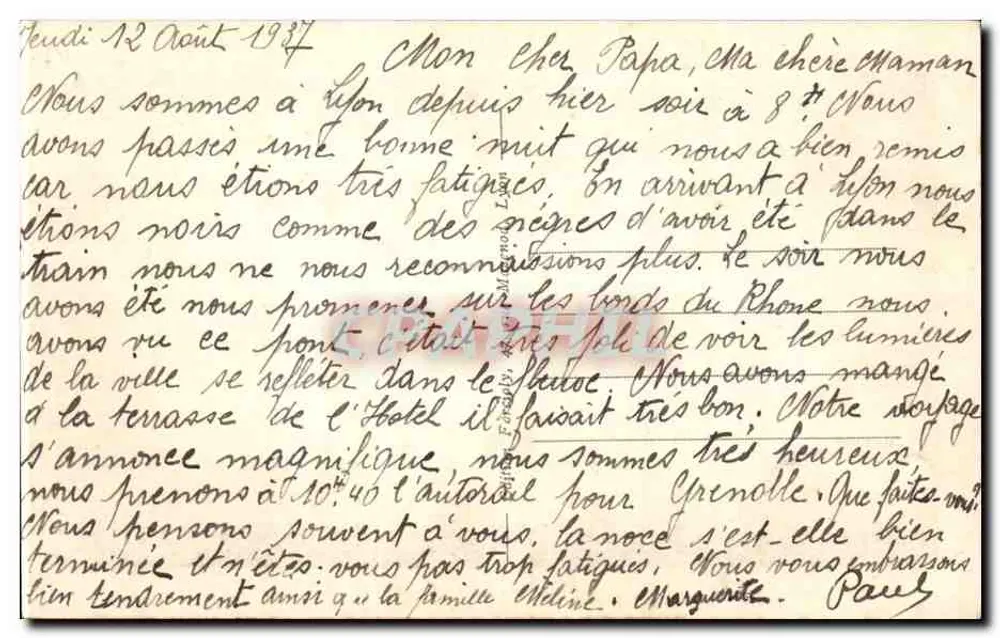 Jeudi 12 Août 1937
Mon cher Papa, Ma chère Maman
Nous sommes à Lyon depuis hier soir à 8H. Nous
avons passés une bonne nuit qui nous a bien remis
car nous étions très fatigués. En arrivant à Lyon nous
étions noirs comme des nègres d'avoir été dans le
train nous ne nous reconnaissions plus. Le soir nous
avons été nous promener sur les bords du Rhone nous
avons vu ce pont, c'était très joli de voir les lumières
de la ville se refléter dans le fleuve. Nous avons mangé
à la terrasse de l'Hotel il faisait très bon. Notre voyage
s'annonce magnifique, nous sommes très heureux,
nous prenons à 10H40 l'autorail pour Grenoble. Que faites-vous?
Nous pensons souvent à vous, la noce s'est-elle bien
terminée et n'êtes-vous pas trop fatigués. Nous vous embrassons
bien tendrement ainsi que la famille Méline. Marguerite. Paul
CPAPHIL